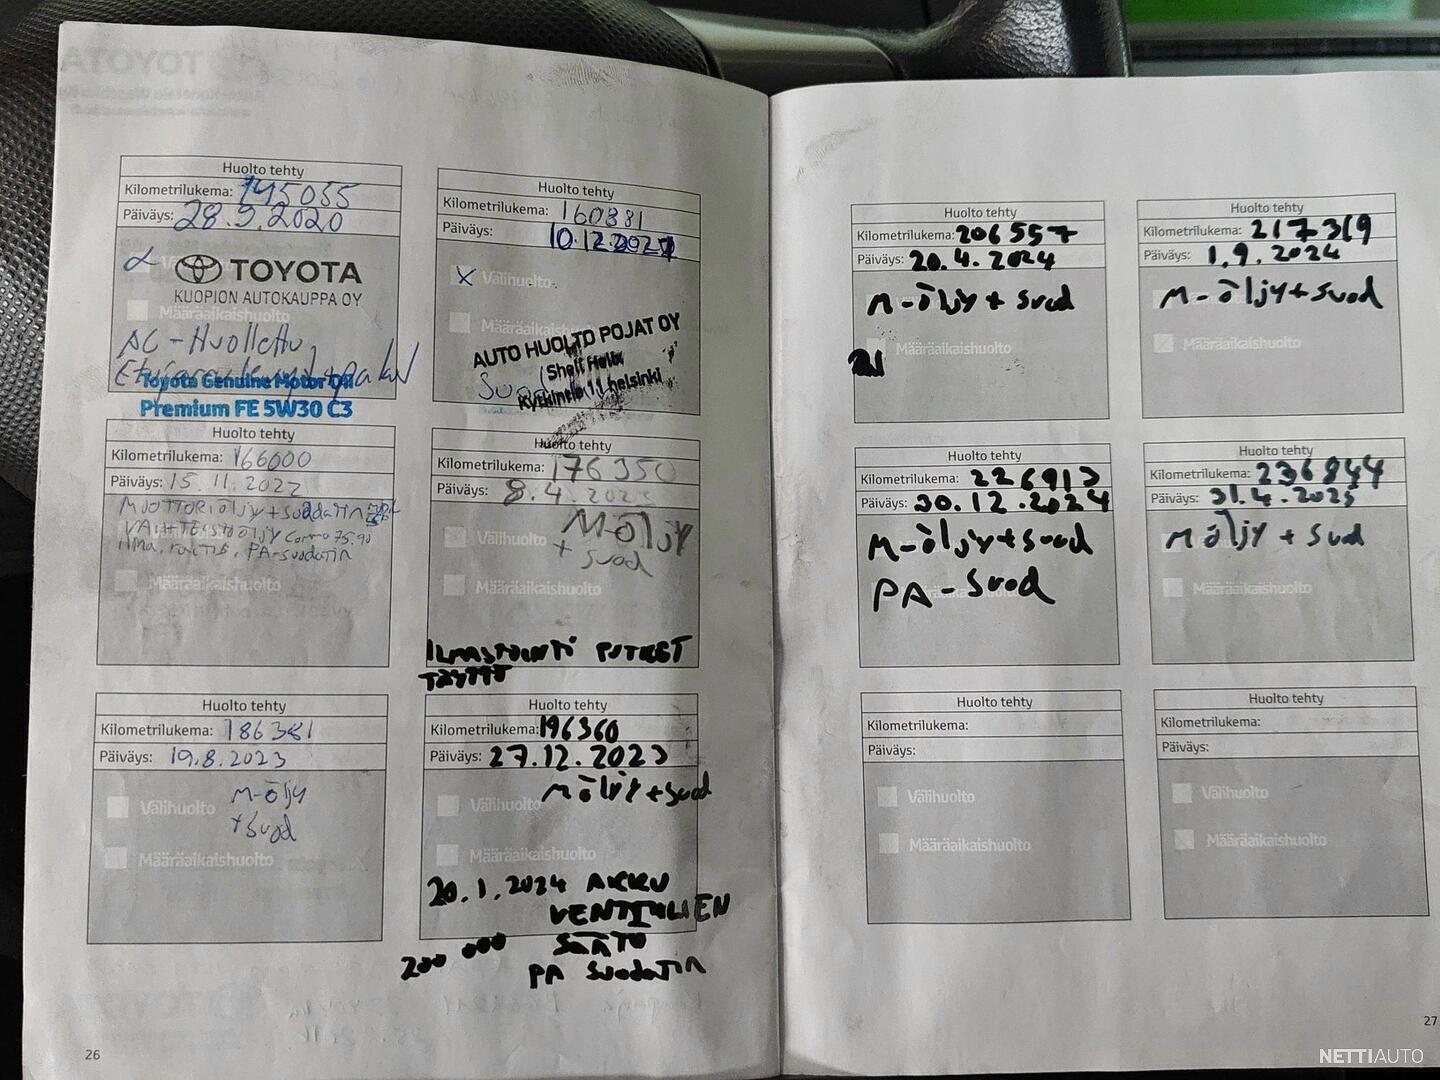 Huolto tehty
Kilometrilukema: 145055
Päiväys: 28.9.2020
TOYOTA
KUOPION AUTOKAUPPA OY
Määräaikaishuolto
AC-Huollettu
Toyota Genuine Motor Oil
Premium FE 5W30 C3
Huolto tehty
Kilometrilukema: 160881
Päiväys: 10.12.2021
x Välihuolto
Määräaikaishuolto
AUTO HUOLTO POJAT OY
Shell Helix
Kytkintie 11 helsinki
Huolto tehty
Kilometrilukema: 166000
Päiväys: 15.11.2022
MOOTTORIÖLJY + SUODATIN
VAIHTEISTOÖLJY Comma 75.90
PA-suodatin
Määräaikaishuolto
Huolto tehty
Kilometrilukema: 176350
Päiväys: 8.4.2023
Välihuolto M-öljy
+ suod
Määräaikaishuolto
ILMASTOINTI PUTKET
TÄYTTÖ
Huolto tehty
Kilometrilukema: 186381
Päiväys: 19.8.2023
M-öljy
Välihuolto +suod
Määräaikaishuolto
Huolto tehty
Kilometrilukema: 196360
Päiväys: 27.12.2023
Välihuolto M-öljy+suod
Määräaikaishuolto
20.1.2024 AKKU
VENTTIILIEN
200 000 SÄÄTÖ
PA suodatin
26
Huolto tehty
Kilometrilukema: 206557
Päiväys: 20.4.2024
M-öljy + suod
Määräaikaishuolto
Huolto tehty
Kilometrilukema: 217319
Päiväys: 1.9.2024
M-öljy+suod
Määräaikaishuolto
Huolto tehty
Kilometrilukema: 226913
Päiväys: 30.12.2024
M-öljy+suod
PA-suod
Huolto tehty
Kilometrilukema: 236844
Päiväys: 31.4.2025
M öljy + suod
Määräaikaishuolto
Huolto tehty
Kilometrilukema:
Päiväys:
Välihuolto
Määräaikaishuolto
Huolto tehty
Kilometrilukema:
Päiväys:
Välihuolto
Määräaikaishuolto
27
NETTIAUTO